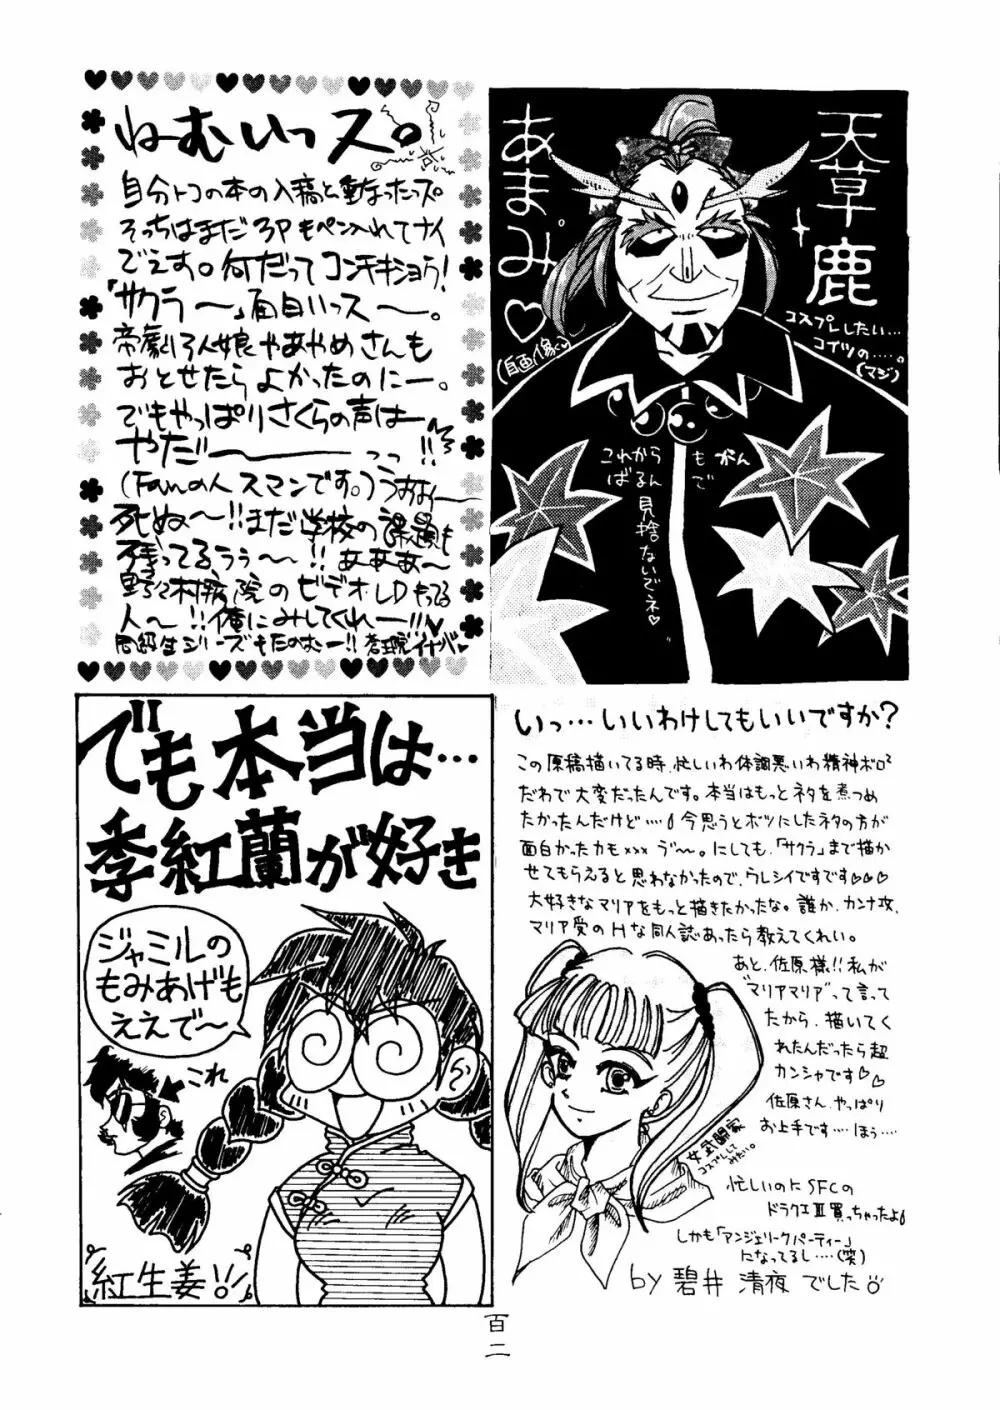 ねむいっス。
自分トコの本の入稿と重なったっス
そっちはまだ3Pもペン入れてナイ
でえす。何だってコンチキショウ!
「サクラ〜」面白いっス〜。
帝劇3人娘やあやめさんも
おとせたらよかったのにー。
でもやっぱりさくらの声はー
やだーーーっっ!!
(Fanの人スマンです。)うおおおー
死ぬ〜!!まだ学校の課題も
残ってるぅぅ〜!!ああああ〜
野々村病院のビデオLDもってる
人〜!!俺にみしてくれー!!
同級生シリーズもたのむー!! 蒼王院イナバ♥
天草鹿
あまみ♡
(自画像)
コスプレしたい…
コイツの…。
(マジ)
これからもがん
ばるんで
見捨ないでネ♡
でも本当は…
李紅蘭が好き
ジャミルの
もみあげも
ええで〜
これ
紅生姜!!
いっ…いいわけしてもいいですか?
この原稿描いてる時、忙しいわ体調悪いわ精神ボロ²
だわで大変だったんです。本当はもっとネタを煮つめ
たかったんだけど…。今思うとボツにしたネタの方が
面白かったカモxxx ゔ〜。にしても、「サクラ」まで描か
せてもらえると思わなかったので、ウレシイですです♡♡♡
大好きなマリアをもっと描きたかったな。誰か、カンナ攻、
マリア受のHな同人誌あったら教えてくれい。
あと、佐原様!!私が
"マリアマリア"って言って
たから、描いてく
れたんだったら超
カンシャです♡♡
佐原さん、やっぱり
お上手です…ほぅ…
女武闘家
コスプレして
みたい。
忙しいのにSFCの
ドラクエⅢ買っちゃったよ
しかも「アンジェリークパーティー」
になってるし…(笑)
by 碧井 清夜 でした
百二